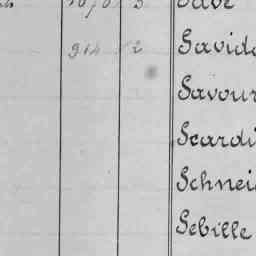 914 2 Savid
Savour
Scardi
Schnei
Sebille